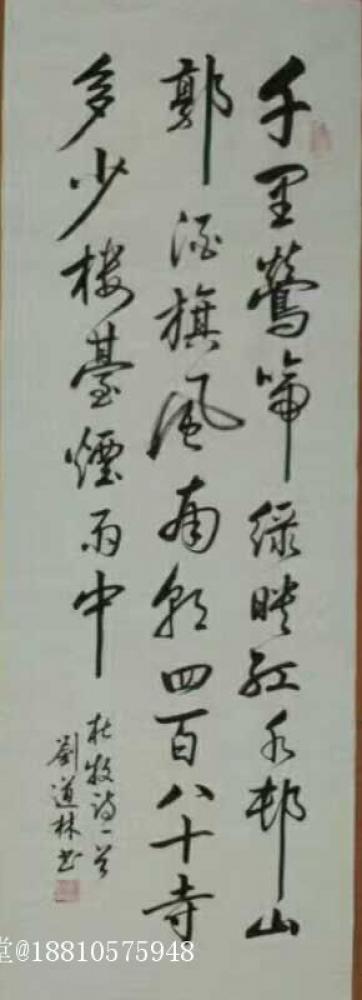 千里莺啼绿映红水邨山
郭酒旗风南朝四百八十寺
多少楼臺煙雨中
杜牧诗一首
劉道林书
堂@18810575948